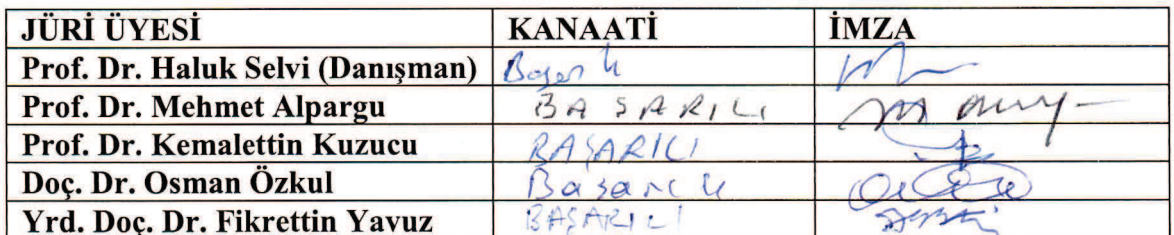 JÜRİ ÜYESİ KANAATİ İMZA
Prof. Dr. Haluk Selvi (Danışman) Başarılı
Prof. Dr. Mehmet Alpargu BAŞARILI
Prof. Dr. Kemalettin Kuzucu BAŞARILI
Doç. Dr. Osman Özkul Başarılı
Yrd. Doç. Dr. Fikrettin Yavuz BAŞARILI